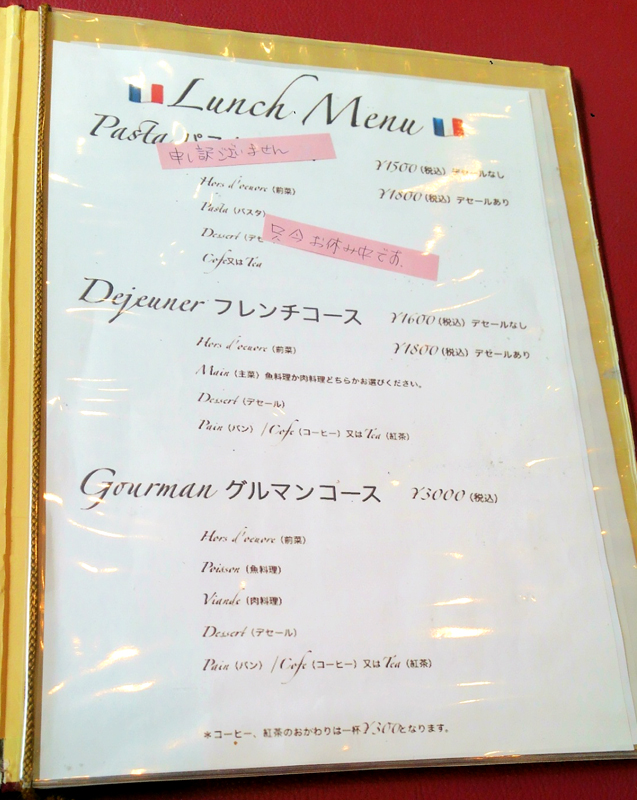 Lunch Menu
Pasta パ
申し訳ございません
¥1500 (税込) デセールなし
Hors d'oeuvre (前菜)
¥1800 (税込) デセールあり
Pasta (パスタ)
Dessert (デセ
只今お休み中です。
Cofe又はTea
Dejeuner フレンチコース
¥1600 (税込) デセールなし
Hors d'oeuvre (前菜)
¥1800 (税込) デセールあり
Main (主菜) 魚料理か肉料理どちらかお選びください。
Dessert (デセール)
Pain (パン) / Cofe (コーヒー) 又はTea (紅茶)
Gourman グルマンコース ¥3000 (税込)
Hors d'oeuvre (前菜)
Poisson (魚料理)
Viande (肉料理)
Dessert (デセール)
Pain (パン) / Cofe (コーヒー) 又はTea (紅茶)
*コーヒー、紅茶のおかわりは一杯¥300となります。